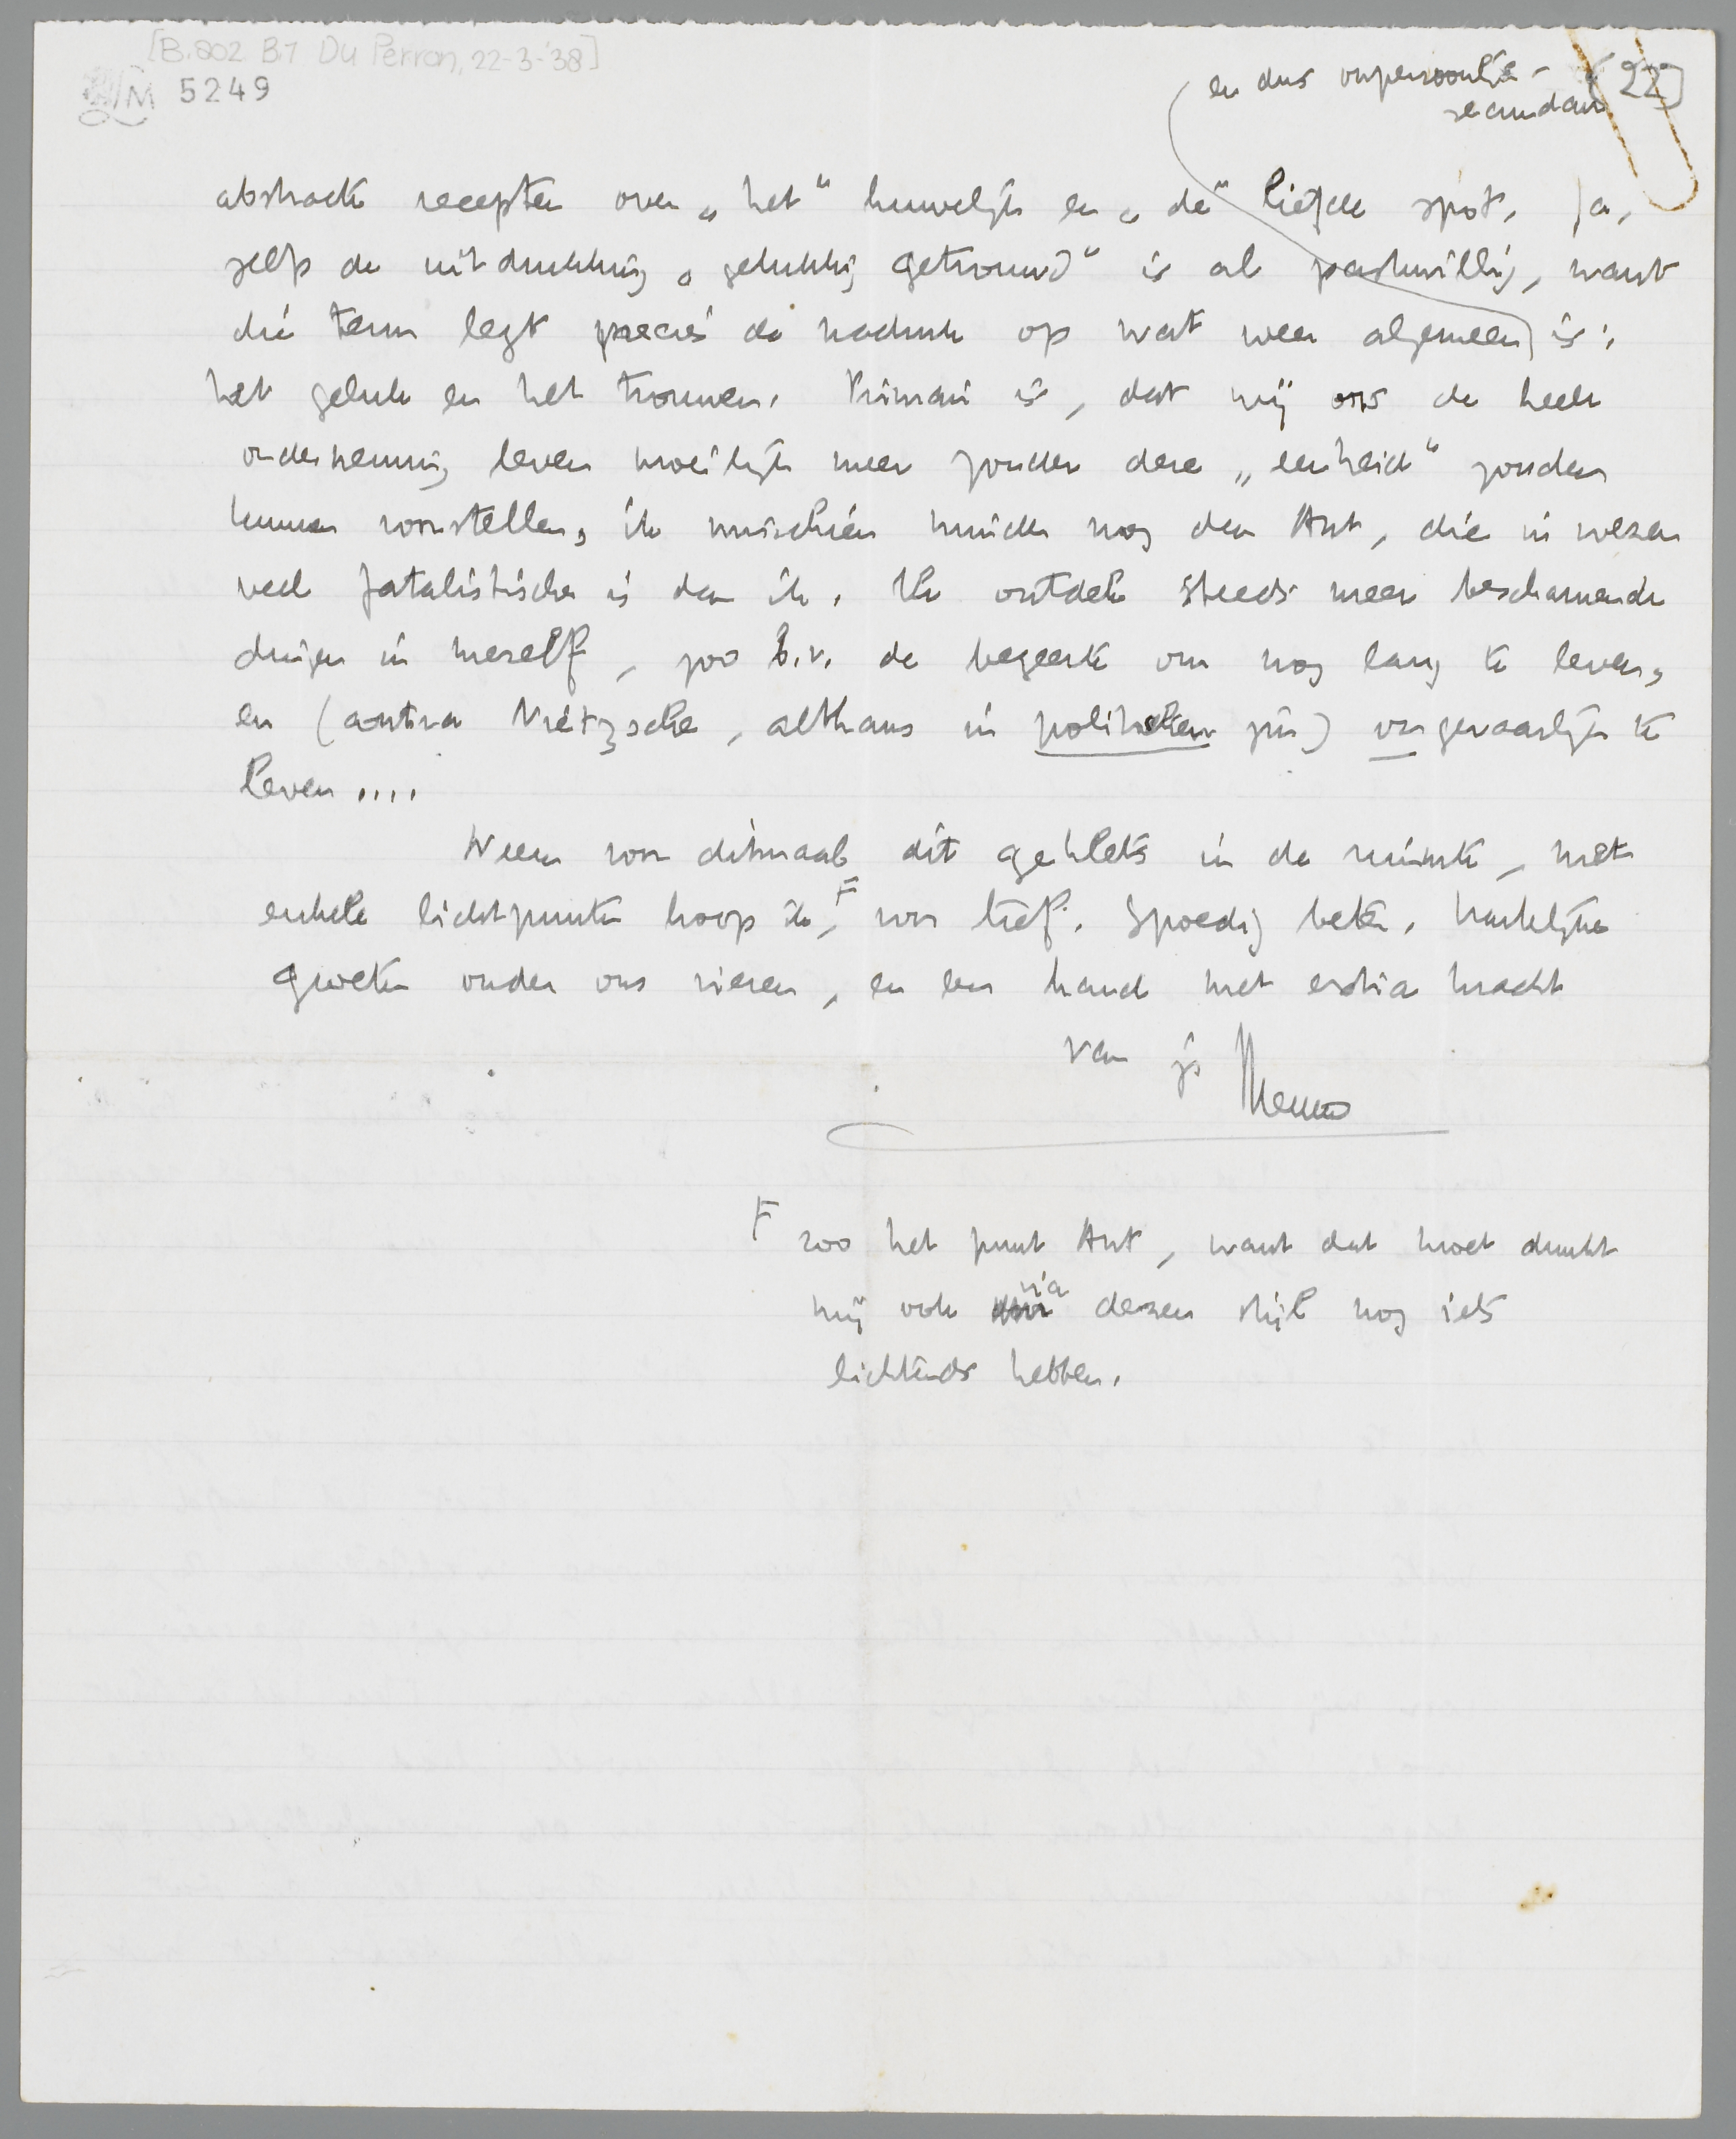 [B.802 B.1 Du Perron, 22-3-'38]
M 5249
[22]
en dus onpersoonlijk-
secundair
abstracte recepten over „het" huwelijk en „de" liefde spot. Ja,
zelfs de uitdrukking „gelukkig getrouwd" is al spot, want
die term legt precies de nadruk op wat weer algemeen is:
het geluk en het trouwen. Primair is, dat wij ons de heele
onderneming leven moeilijk meer zonder deze „eenheid" zouden
kunnen voorstellen, ik misschien minder nog dan Ant, die in wezen
veel fatalistischer is dan ik. Ik ontdek steeds meer beschamende
dingen in mezelf, zoo b.v. de begeerte om nog lang te leven,
en (contra Nietzsche, althans in politieken zin) ongevaarlijk te
leven....
Neem voor ditmaal dit geklets in de ruimte, met
enkele lichtpunten hoop ik,F voor lief. Spoedig beter. Hartelijke
groeten onder ons vieren, en een hand met extra kracht
van je Menno
F zoo het punt Ant, want dat moet dunkt
mij ook via dezen stijl nog iets
lichtends hebben.